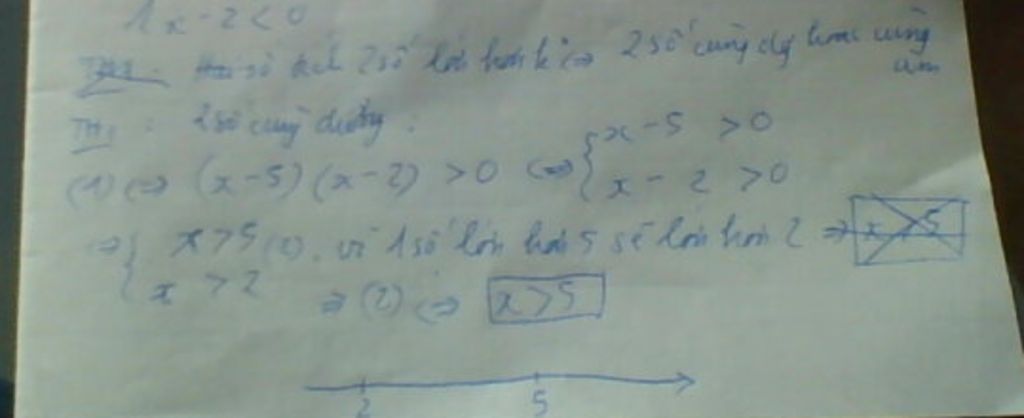 x - 2 < 0
số tích 2 số lớn hơn k° <=> 2 số cùng dg hoặc cùng
âm
TH1 : 2 số cùng dương :
(1) <=> (x-5)(x-2) > 0 <=> { x - 5 > 0
x - 2 > 0
=> { x > 5 (2). vì 1 số lớn hơn 5 sẽ lớn hơn 2 =>
x > 2 => (2) <=> x > 5
2 5